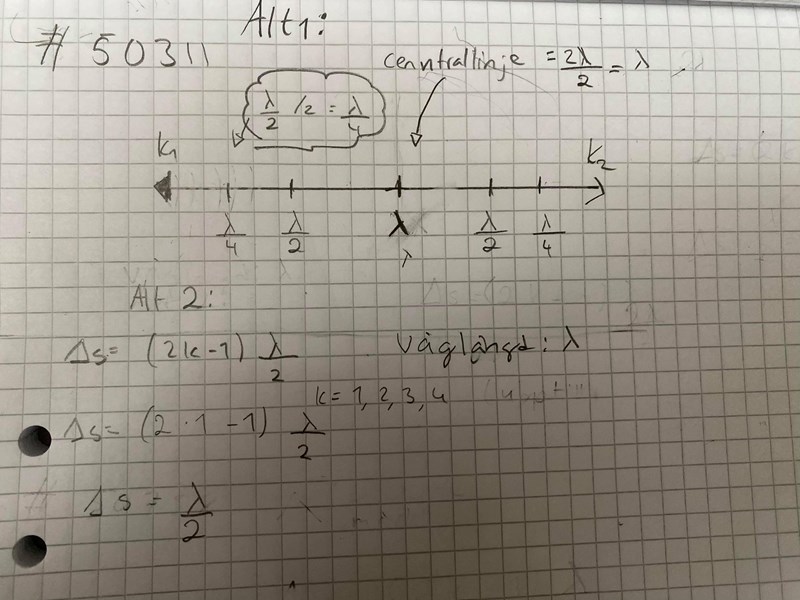 # 50311
Alt1:
Cenntrallinje = 2λ/2 = λ
λ/2 /2 = λ/4
K1
K2
λ/4 λ/2 λ λ/2 λ/4
λ
Alt 2:
Δs= (2k-1) λ/2
Våglängd: λ
k= 1, 2, 3, 4
Δs= (2·1-1) λ/2
Δs = λ/2